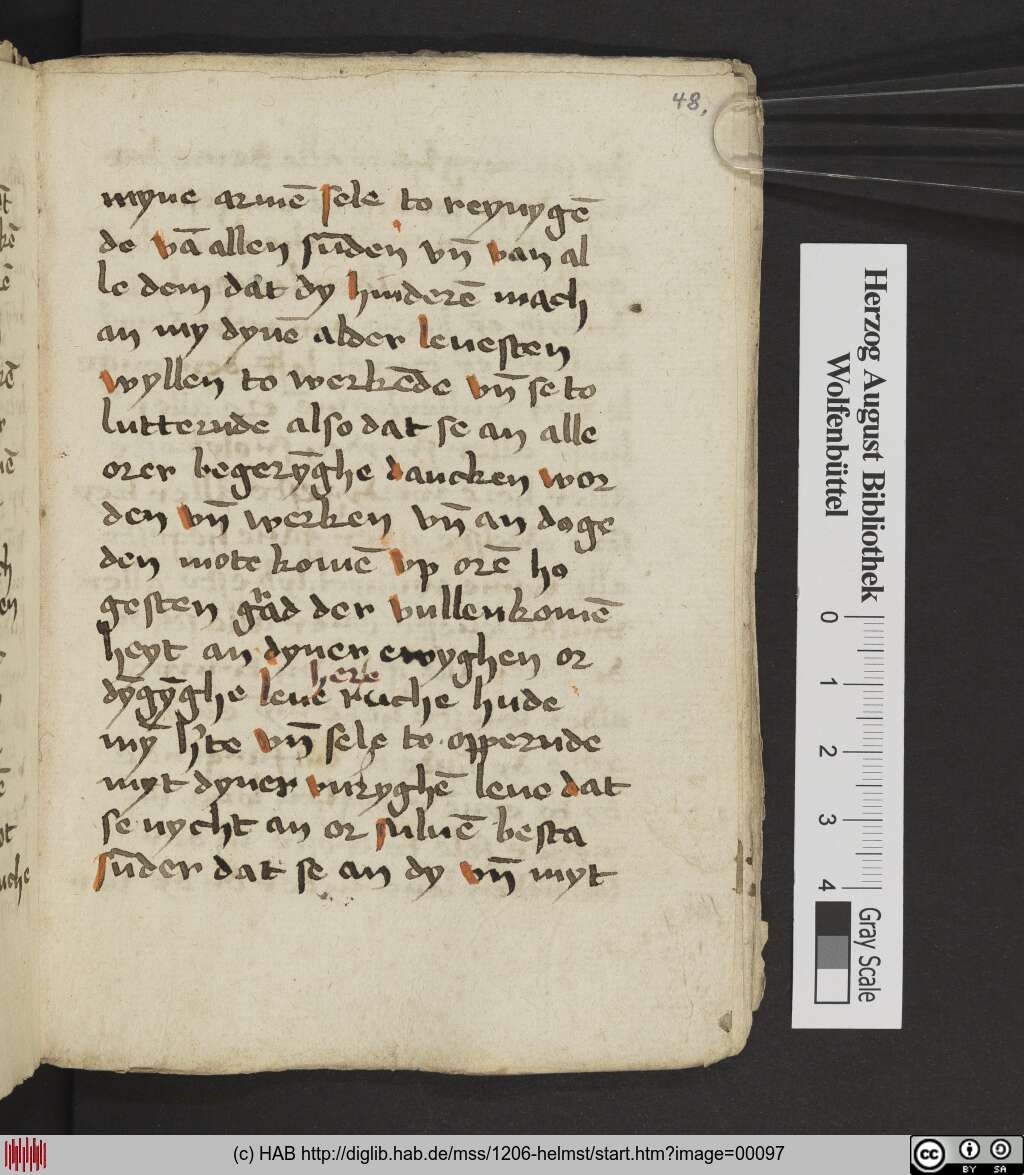 48,
myne armē sele to reynygē
de vā allen sūden vn̄ van al
le dem dat dy hinderē mach
an my dynē alder leuesten
wyllen to werkēde vn̄ se to
lutternde also dat se an alle
orer begerȳghe dancken wor
den vn̄ werken vn̄ an doge
den mote komē vp orē ho
gesten grad der vullenkomē
heyt an dyner ewyghen or
dȳgȳghe leue here ruche hude
mȳ hʼte vn̄ sele to oppernde
myt dyner vuryghē leue dat
se nycht an or suluē besta
sūder dat se an dy vn̄ myt
Herzog August Bibliothek
Wolfenbüttel
0 1 2 3 4
Gray Scale
(c) HAB http://diglib.hab.de/mss/1206-helmst/start.htm?image=00097
cc BY SA